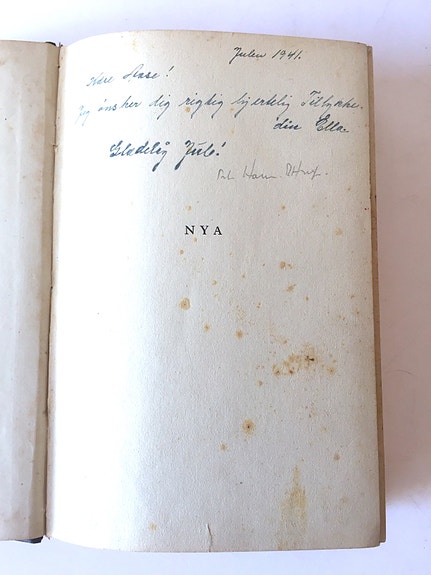 Julen 1941.
Kære Aase!
Jeg ønsker dig rigtig hjertelig Tillykke.
din Ella
Glædelig Jul!
NYA